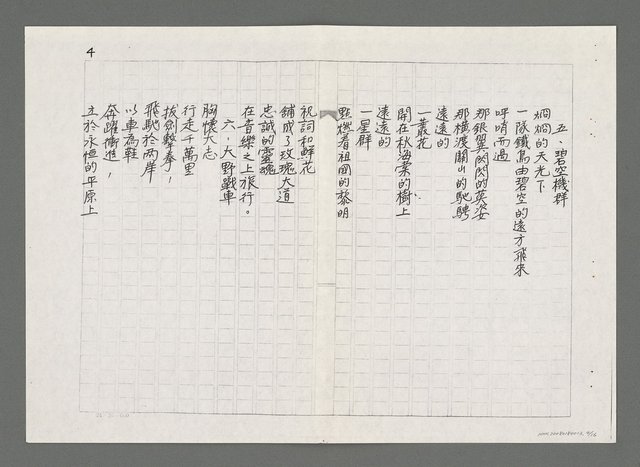 4
五、碧空機群
烱烱的天光下
一隊鐵鳥由碧空的遠方飛來
呼哨而過
那銀翼閃閃的英姿
那橫渡關山的馳騁
遠遠的
一叢花
開在秋海棠的樹上
遠遠的
一星群
點燃着祖國的黎明
祝詞和鮮花
舖成了玫瑰大道
忠誠的靈魂
在音樂之上旅行。
六、大野戰車
胸懷大志
行走千萬里
拔劍擊拳，
飛馳於兩岸
以車為鞋
奔躍衝進，
立於永恒的平原上